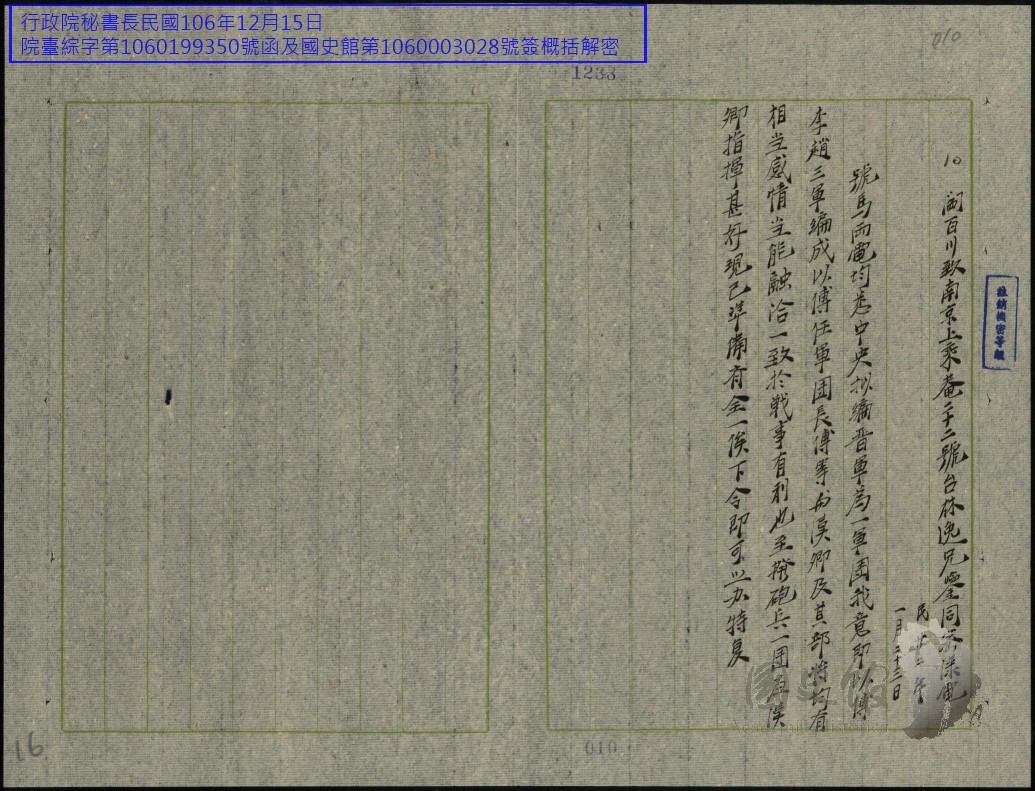 行政院秘書長民國106年12月15日
院臺綜字第1060199350號函及國史館第1060003028號簽概括解密
010
1233
註銷機密等級
10 閻百川致南京上乘菴二十二號台林逸兄鑒同密漾電
民廿二年
一月二十三日
號馬兩電均悉中央拟編晉軍為一軍团我意即以傅
李趙三軍編成以傅任軍团長傅等與漢卿及其部將均有
相当感情当能融洽一致於戰事有利也至撥砲兵一团直漢
卿指揮甚好現已準備有全一俟下令即可照办特复
國史館
010
16